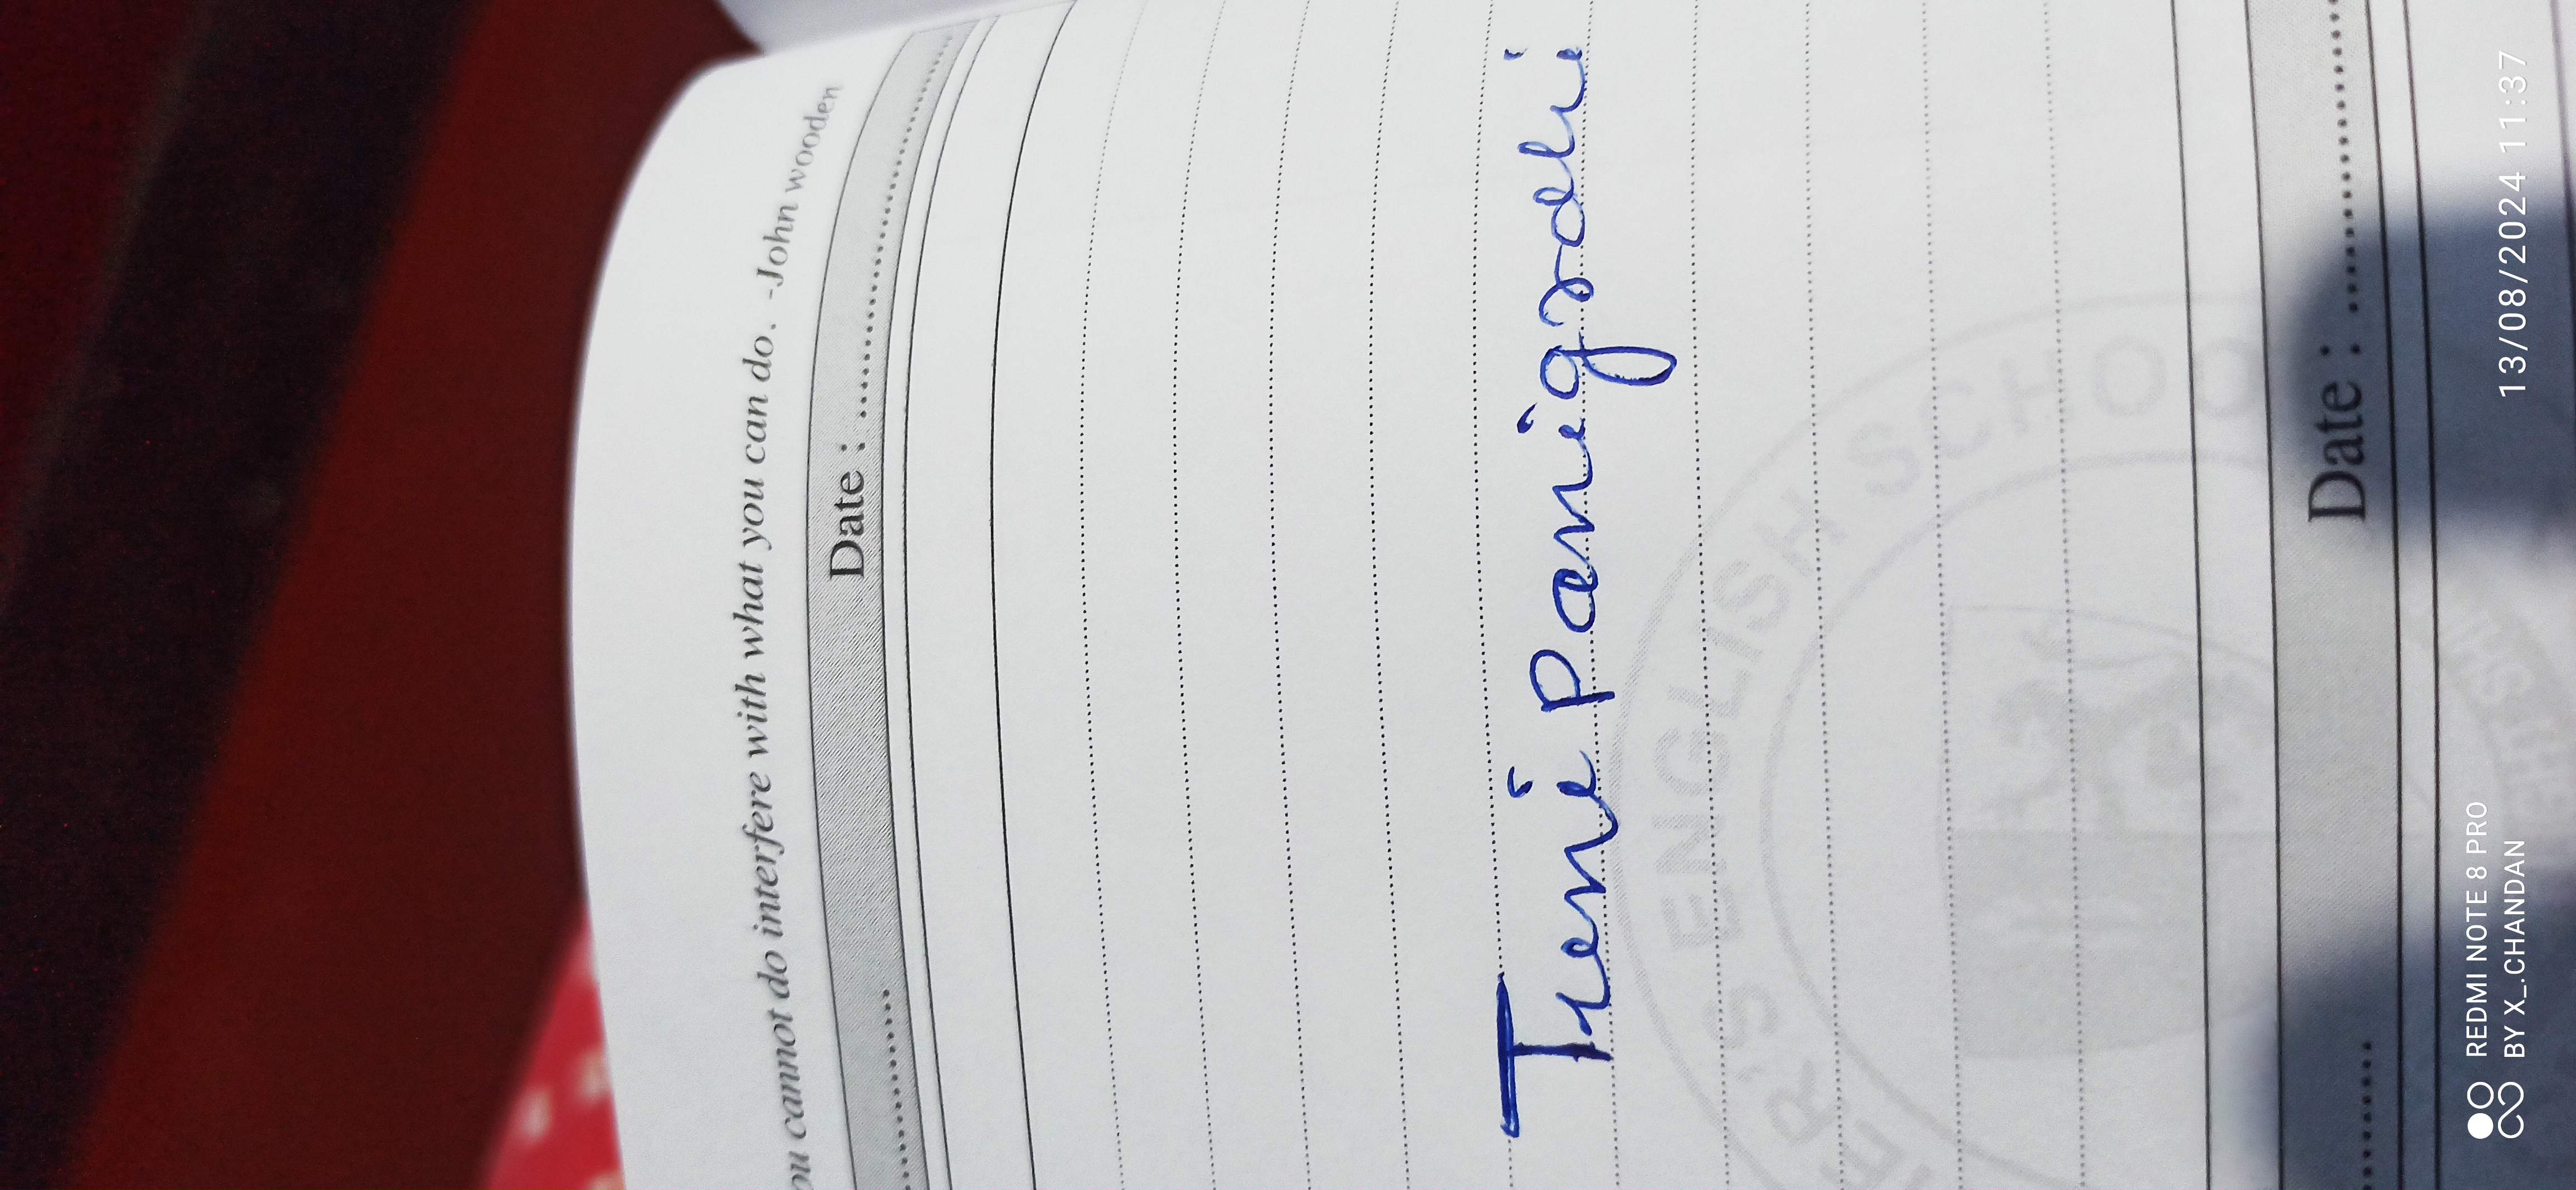 ou cannot do interfere with what you can do. -John wooden
Date : ....................
Tuni panigrahi
ER'S ENGLISH SCHOO
Date : ....................
REDMI NOTE 8 PRO
BY X_.CHANDAN
13/08/2024 11:37